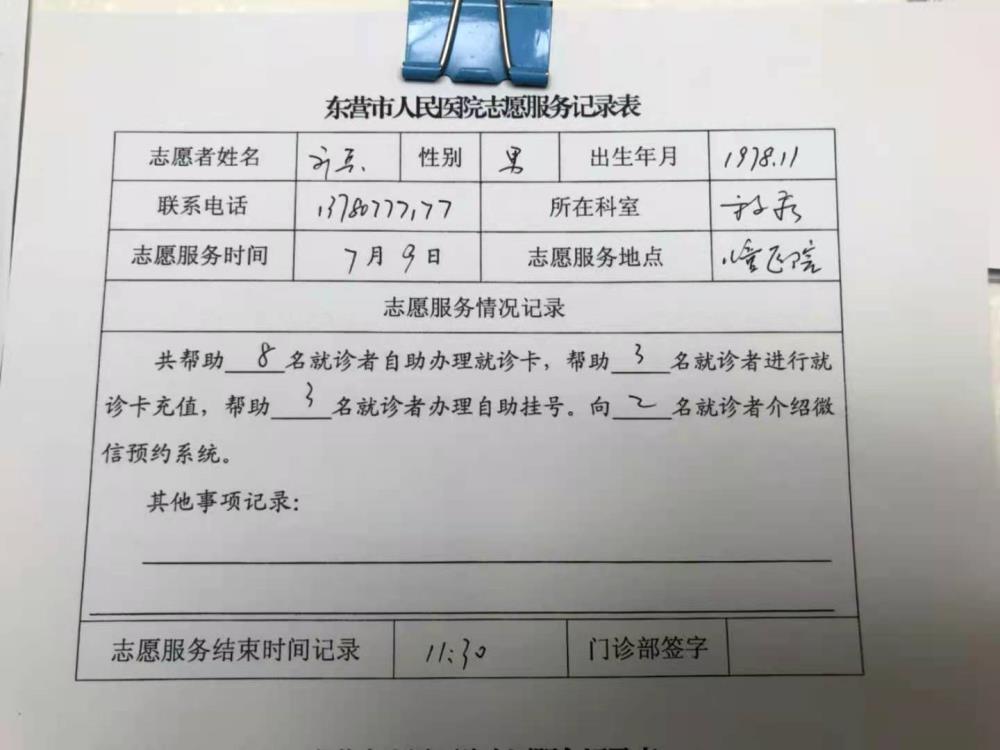 东营市人民医院志愿服务记录表
志愿者姓名 性别 男 出生年月 1978.11
联系电话 13780777177 所在科室
志愿服务时间 7月9日 志愿服务地点 儿童医院
志愿服务情况记录
共帮助 8 名就诊者自助办理就诊卡，帮助 3 名就诊者进行就
诊卡充值，帮助 3 名就诊者办理自助挂号。向 2 名就诊者介绍微
信预约系统。
其他事项记录：
志愿服务结束时间记录 11:30 门诊部签字